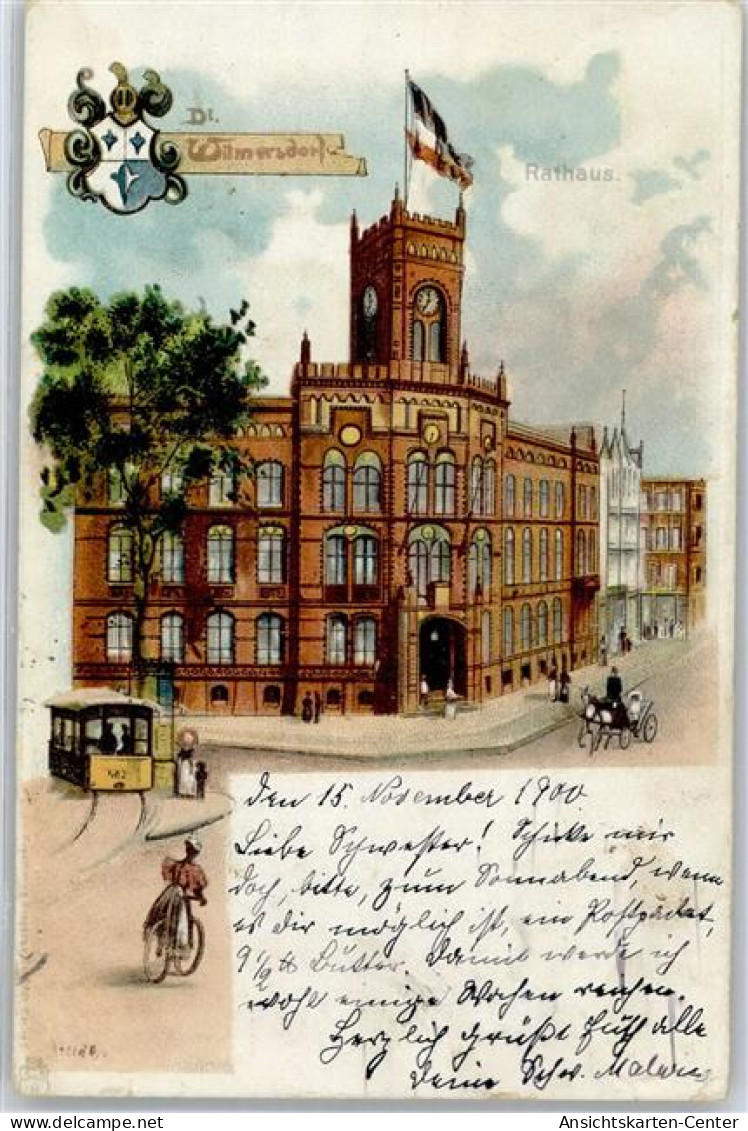 Dt.
Wilmersdorf
Rathaus.
462
den 15. November 1900.
Liebe Schwester! Schicke mir
doch, bitte, zum Sonnabend, wenn
es dir möglich ist, ein Postpacket,
9 1/2 ℔ Butter. Damit werde ich
wohl einige Wochen reichen.
Herzlich grüßt Euch alle
Deine Schw. Malwine
Ansichtskarten-Center